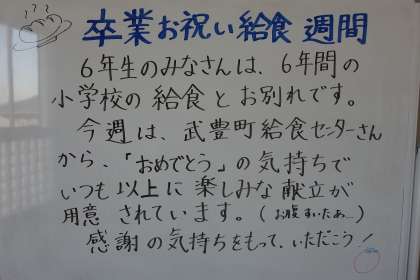 卒業お祝い給食週間
６年生のみなさんは、６年間の
小学校の給食とお別れです。
今週は、武豊町給食センターさん
から、「おめでとう」の気持ちで
いつも以上に楽しみな献立が
用意されています。（お腹すいたぁ…）
感謝の気持ちをもって、いただこう！